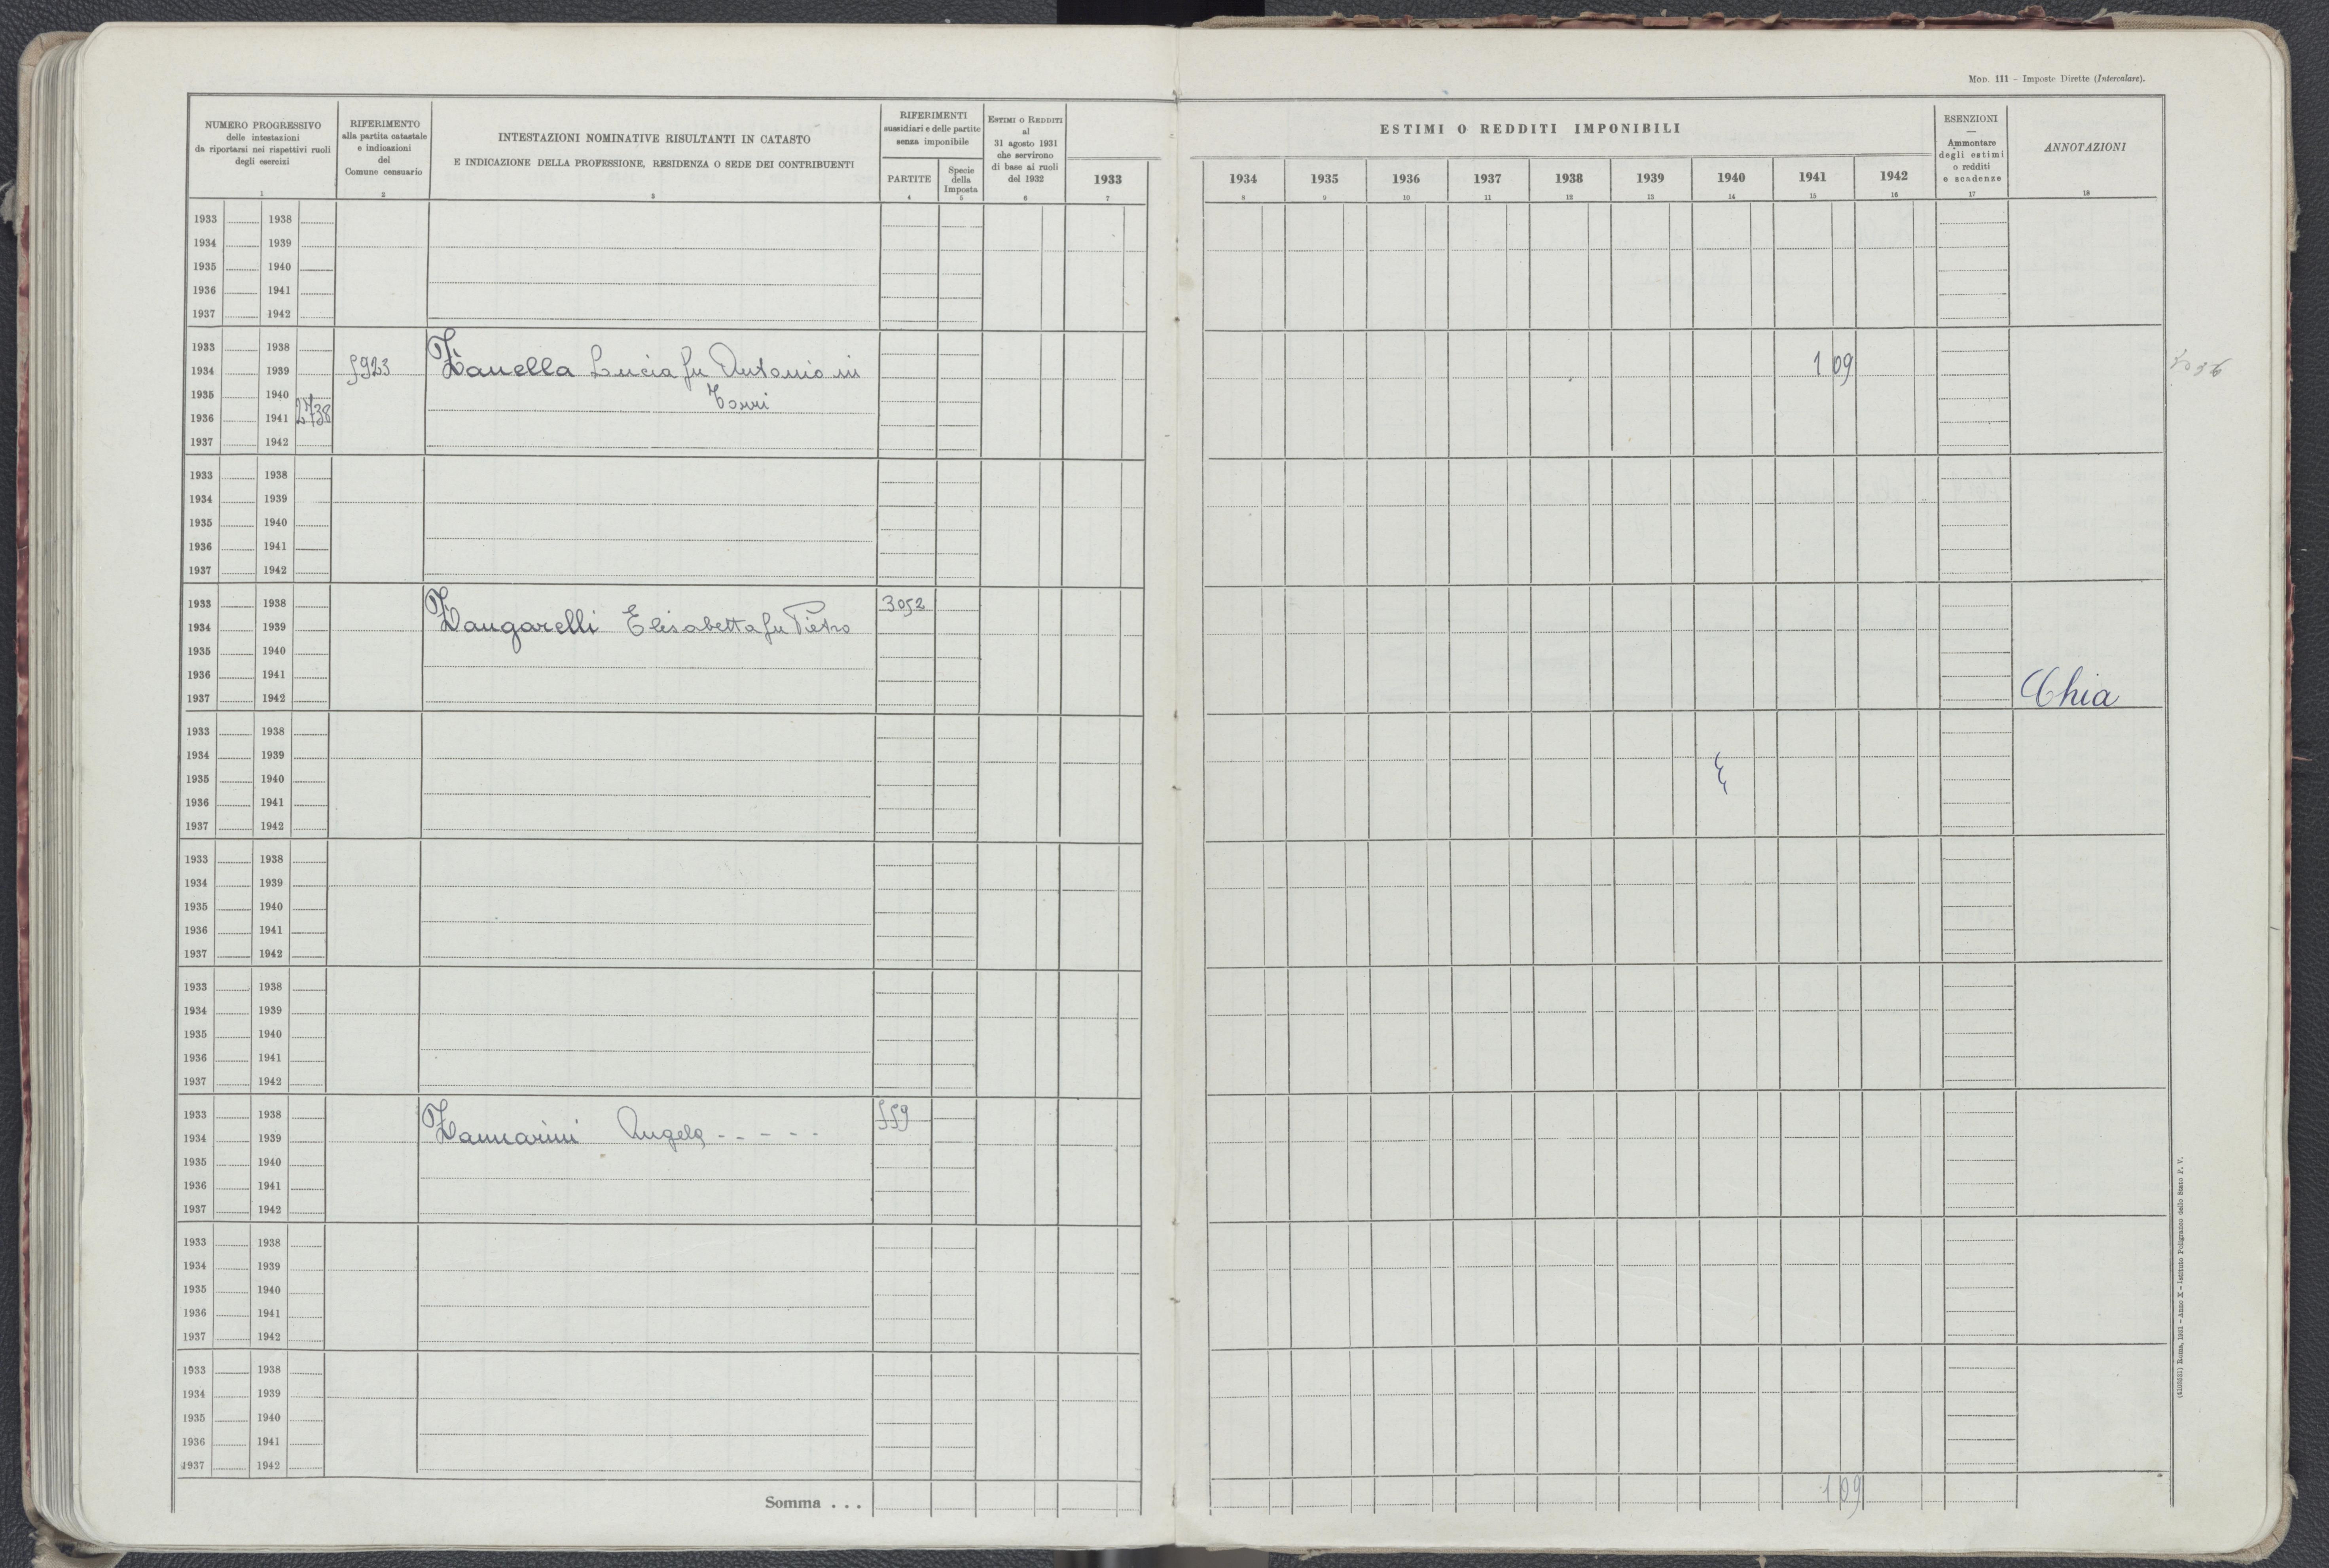 Mod. 111 - Imposte Dirette (Intercalare).
NUMERO PROGRESSIVO
delle intestazioni
da riportarsi nei rispettivi ruoli
degli esercizi
1
RIFERIMENTO
alla partita catastale
e indicazioni
del
Comune censuario
2
INTESTAZIONI NOMINATIVE RISULTANTI IN CATASTO
E INDICAZIONE DELLA PROFESSIONE, RESIDENZA O SEDE DEI CONTRIBUENTI
3
RIFERIMENTI
sussidiari e delle partite
senza imponibile
PARTITE
4
Specie
della
Imposta
5
Estimi o Redditi
al
31 agosto 1931
che servirono
di base ai ruoli
del 1932
6
1933
7
ESTIMI O REDDITI IMPONIBILI
1934 1935 1936 1937 1938 1939 1940 1941 1942
8 9 10 11 12 13 14 15 16
ESENZIONI
—
Ammontare
degli estimi
o redditi
e scadenze
17
ANNOTAZIONI
18
1933 1938
1934 1939
1935 1940
1936 1941
1937 1942
1933 1938
1934 1939 5923 Zanella Lucia fu Antonio in 1 09
1935 1940 Torri
1936 1941 2738
1937 1942
1933 1938
1934 1939
1935 1940
1936 1941
1937 1942
1933 1938 3052
1934 1939 Zangarelli Elisabetta fu Pietro
1935 1940
1936 1941
1937 1942 Chia
1933 1938
1934 1939
1935 1940
1936 1941
1937 1942
1933 1938
1934 1939
1935 1940
1936 1941
1937 1942
1933 1938
1934 1939
1935 1940
1936 1941
1937 1942
1933 1938 559
1934 1939 Zannarini Angelo - - - - -
1935 1940
1936 1941
1937 1942
1933 1938
1934 1939
1935 1940
1936 1941
1937 1942
1933 1938
1934 1939
1935 1940
1936 1941
1937 1942
Somma . . . 1 09
Roma, 1931 - Anno X - Istituto Poligrafico dello Stato P. V.